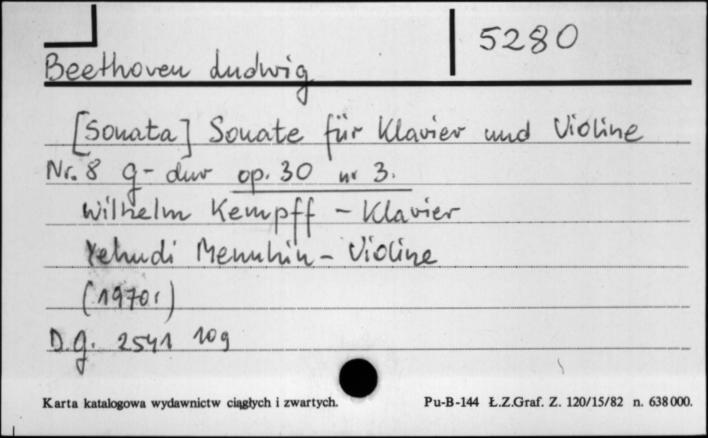 5280
Beethoven Ludwig
[Sonata] Sonate für Klavier und Violine
Nr. 8 g-dur op. 30 nr 3.
Wilhelm Kempff - Klavier
Yehudi Menuhin - Violine
(1970r)
D.g. 2541 109
Karta katalogowa wydawnictw ciągłych i zwartych. Pu-B-144 Ł.Z.Graf. Z. 120/15/82 n. 638000.